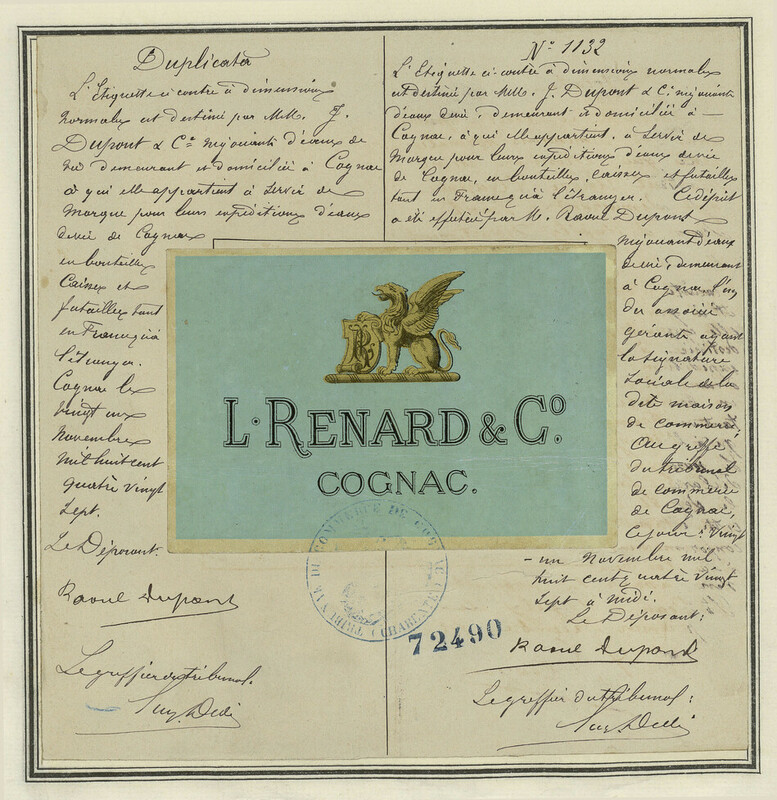 Duplicata
L'Etiquette ci-contre à dimensions
normales est destinée par MM. J.
Dupont & Cie négociants d'eaux de
vie demeurant et domiciliés à Cognac
à qui elle appartient à servir de
marque pour leurs expéditions d'eaux
de vie de Cognac
en bouteilles
Caisses et
futailles tant
en France qu'à
l'étranger.
Cognac le
vingt un
Novembre
mil huit cent
quatre vingt
sept.
Le Déposant.
Raoul Dupont
Le greffier du tribunal.
No 1132
L'Etiquette ci-contre à dimensions normales
est destinée par MM. J. Dupont & Cie négociants
d'eaux de vie, demeurant et domiciliés à
Cognac, à qui elle appartient, à servir de
Marque pour leurs expéditions d'eaux de vie
de Cognac, en bouteilles, caisses et futailles
tant en France qu'à l'étranger. Ce dépôt
a été effectué par M. Raoul Dupont
négociant d'eaux
de vie, demeurant
à Cognac, l'un
des associés
gérants ayant
la signature
sociale de la
dite maison
de commerce,
Au greffe
du tribunal
de commerce
de Cognac,
ce jour : Vingt
- un Novembre mil
huit cent quatre vingt
sept à midi.
Le Déposant :
Raoul Dupont
Le greffier du tribunal :
L. RENARD & Co.
COGNAC.
TRIBUNAL DE COMMERCE DE COGNAC (CHARENTE)
72490